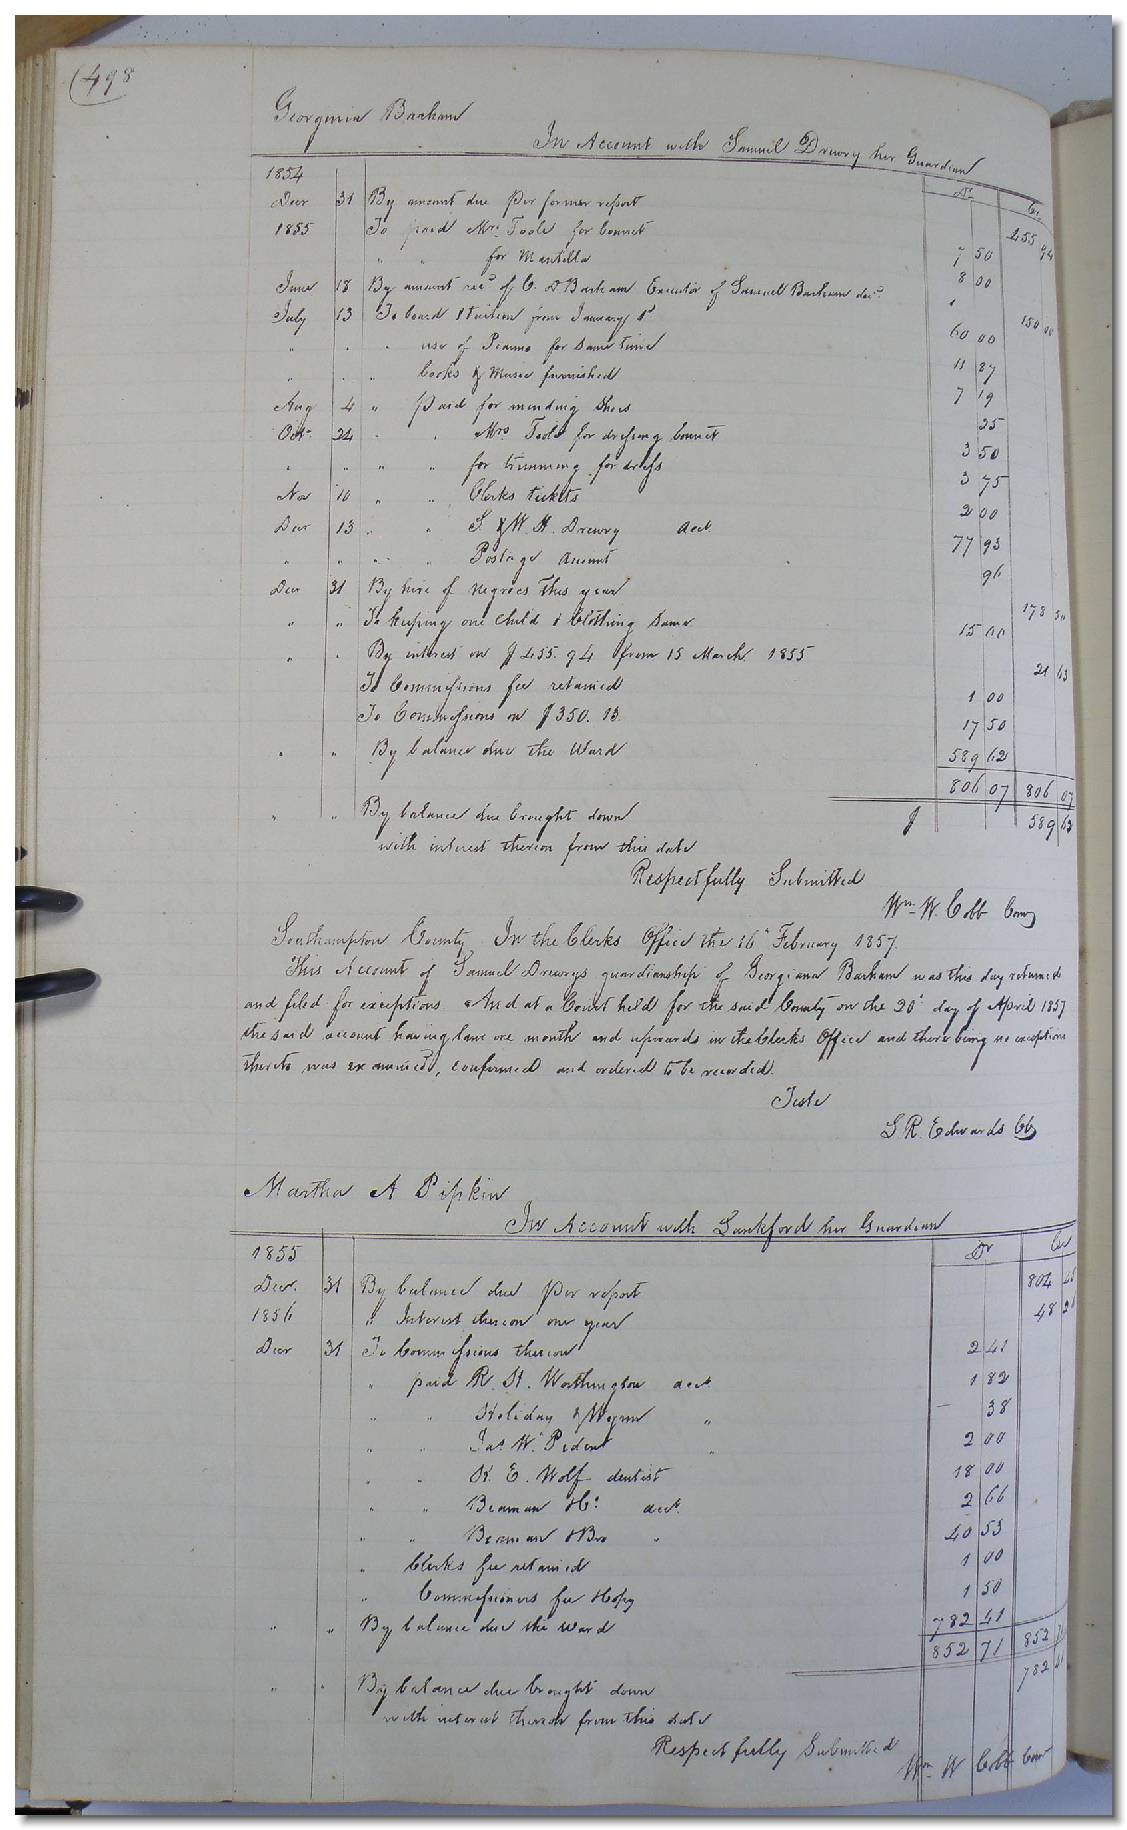 (498
Georgina Barham
In Account with Samuel Drewry her Guardian
Dr Cr
1854
Decr 31 By amount due per former report 455 94
1855 To paid Mrs Toole for bonnet 7 50
" " for Mantilla 8 00
June 18 By amount recd of C. D Barham Executor of Samuel Barham decd 150 00
July 13 To board & tuition from January 1t 60 00
" " " use of Peanno for same time 11 87
" " " books & Music furnished 7 19
Aug 4 " paid for mending shoes 25
Octr 24 " " Mrs Toole for dressing bonnet 3 50
" " " " for trimming for dress 3 75
Nov 10 " " Clerks tickets 2 00
Decr 13 " " S. & W. H. Drewry acct. 77 93
" " " " Postage Amount 96
Decr 31 By hire of negroes this year 178 50
" " To keeping one child & Clothing same 15 00
" " By interest on $455.94 from 15 March 1855 21 63
To Commissions fee retained 1 00
To Commissions on $350.13. 17 50
" " By balance due the Ward 589 62
806 07 806 07
" " By balance due brought down $ 589 62
with interest thereon from this date
Respectfully Submitted
Wm. W. Cobb Comr
Southampton County In the Clerks Office the 16" February 1857.
This Account of Samuel Drewrys guardianship of Georgiana Barham was this day returned
and filed for exceptions And at a Court held for the said County on the 20" day of April 1857
the said account having lain one month and upwards in the Clerks Office and there being no exceptions
thereto was examined, confirmed and ordered to be recorded.
Teste
L R. Edwards Ck
Martha A Pipkin
In Account with Lankford her Guardian
Dr Cr
1855
Decr. 31 By balance due per report 804
1856 " Interest thereon one year 48
Decr 31 To Commissions thereon 2 41
" paid R. H. Worthington acct 1 82
" " Holiday & Wynn " 38
" " Jas. W. Pedent " 2 00
" " K. E. Wolf dentist 18 00
" " Beaman & Co. acct. 2 66
" " Beaman & Bro " 40 53
" Clerks fee retained 1 00
" Commissioners fee & Copy 1 50
" " By balance due the Ward 782 41
852 71 852 71
" " By balance due brought down 782 41
with interest thereon from this date
Respectfully Submitted
Wm W Cobb Comr